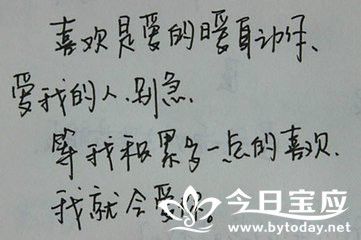 喜欢是爱的暖身动作、
爱我的人、别急、
等我积累多一点的喜欢、
我就会爱你。
今日宝应
www.bytoday.net